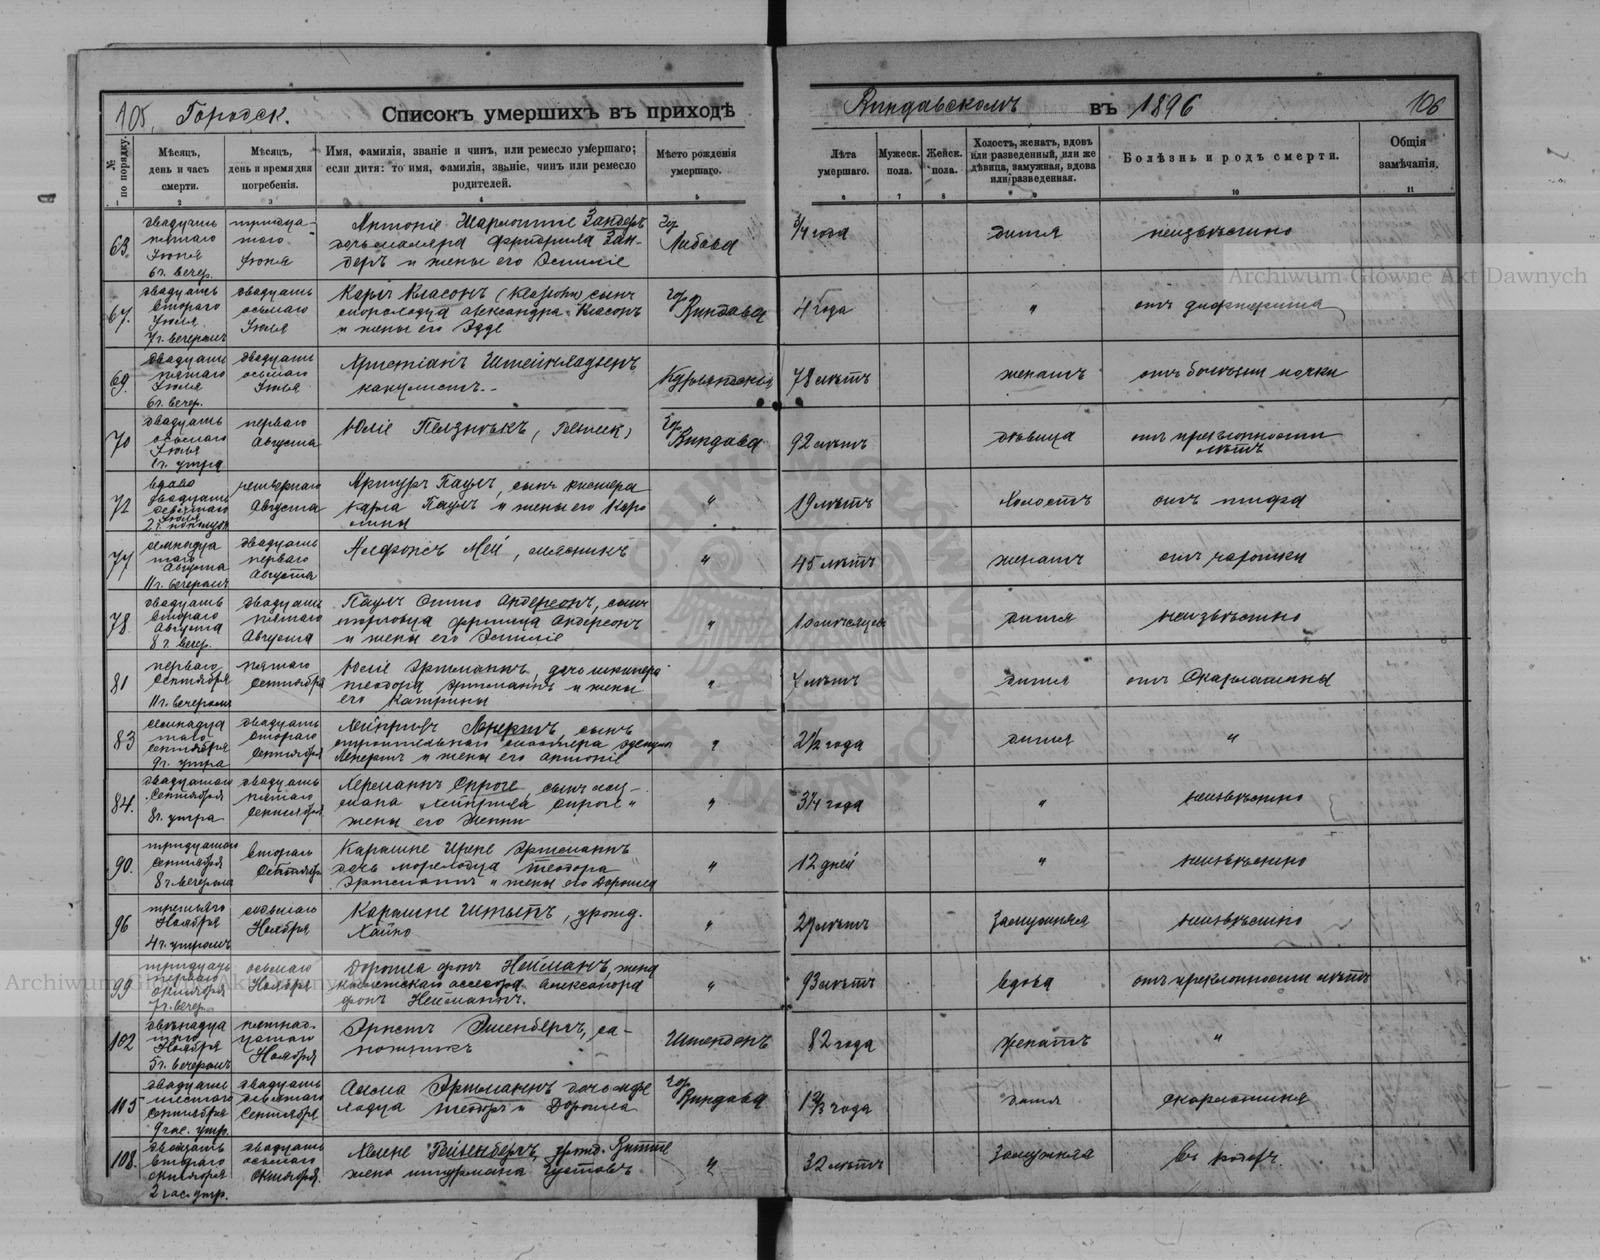 105. Городск. Списокъ умершихъ въ приходѣ Виндавскомъ въ 1896 106
№ по порядку.
Мѣсяцъ, день и часъ смерти.
Мѣсяцъ, день и время дня погребенія.
Имя, фамилія, званіе и чинъ, или ремесло умершаго; если дитя: то имя, фамилія, званіе, чинъ или ремесло родителей.
Мѣсто рожденія умершаго.
Лѣта умершаго.
Мужеск. пола.
Женск. пола.
Холостъ, женатъ, вдовъ или разведенный, или же дѣвица, замужняя, вдова или разведенная.
Болѣзнь и родъ смерти.
Общія замѣчанія.
1 2 3 4 5 6 7 8 9 10 11
63.
двадцать пятаго Іюня 6 ч. вечер.
тридцатаго Іюня
Антоніе Шарлотте Зандеръ
дочь маляра Фридриха Зан-
деръ и жены его Эмиліе
гор. Либава
3/4 года
дитя
неизвѣстно
67.
двадцать втораго Іюля 7 ч. вечеромъ
двадцать осьмаго Іюля
Карлъ Класонъ (Klassohn) сынъ
морехода Александра Класонъ
и жены его Эдде
гор. Виндава
4 года
"
отъ дифтерита
69.
двадцать пятаго Іюля 6 ч. вечер.
двадцать осьмаго Іюля
Христіанъ
78 лѣтъ
женатъ
отъ болѣзни почки
70
двадцать осьмаго Іюля 1 ч. утра
перваго Августа
Юліе
гор. Виндава
92 лѣтъ
дѣвица
отъ преклонности лѣтъ
72
двадцать девятаго Іюля
четвертаго Августа
Артуръ Пауль, сынъ кистера
Карла Пауль и жены его Каро
лины
"
19 лѣтъ
холостъ
отъ тифа
77
семнадца таго Августа 11 ч. вечеромъ
двадцать перваго Августа
Алфонсъ Мей,
"
45 лѣтъ
женатъ
отъ чахотки
78
двадцать втораго Августа 8 ч. вечер.
двадцать пятаго Августа
Пауль Отто Андерсонъ, сынъ
торговца Фрица Андерсонъ
и жены его Эмиліе
"
10 мѣсяцевъ
дитя
неизвѣстно
81
перваго Сентября 11 ч. вечеромъ
пятаго Сентября
Юліе Эртманнъ, дочь шкипера
Теодора Эртманнъ и жены
его Катрины
"
4 лѣтъ
дитя
отъ Скарлатины
83
семнадца таго Сентября 9 ч. утра
двадцать втораго Сентября
Хейнрихъ Ленертъ, сынъ
строительнаго
Ленертъ и жены его Антоніе
"
2 1/2 года
дитя
"
84.
двадцатаго Сентября 8 ч. утра
двадцать пятаго Сентября
Херманнъ Спроге, сынъ лоц-
мана Хейнриха Спроге и
жены его Женни
"
3/4 года
"
неизвѣстно
90.
тридцатаго Сентября 8 ч. вечеромъ
втораго
Каролине Ирене Эртманнъ
дочь морехода Теодора
Эртманнъ и жены его Доротеа
"
12 дней
"
неизвѣстно
96
третьяго Ноября 4 ч. утромъ
седьмаго Ноября
Каролине, урожд.
"
29 лѣтъ
Замужняя
неизвѣстно
99
тридцать перваго Октября 7 ч. вечер.
осьмаго Ноября
Доротеа фонъ Нейманъ, жена
ассесора Александра
фонъ Нейманъ.
"
93 лѣтъ
вдова
отъ преклонности лѣтъ
102
двѣнадца таго Ноября 5 ч. вечеромъ
пятнад- цатаго Ноября
Эрнстъ Эшенбергъ, са-
пожникъ
82 года
женатъ
"
105
двадцать шестаго Сентября 9 час. утр.
двадцать девятаго Сентября
Алма Эртманнъ дочь море
ходца Теодоръ и Доротеа
гор. Виндава
1 2/3 года
дитя
скарлатина
108.
двадцать втораго октября 2 час. утр.
двадцать осьмаго Октября.
Хелене урожд. Витте
жена штурмана Густавъ
"
32 лѣтъ
Замужняя
Archiwum Główne Akt Dawnych
Archiwum Główne Akt Dawnych